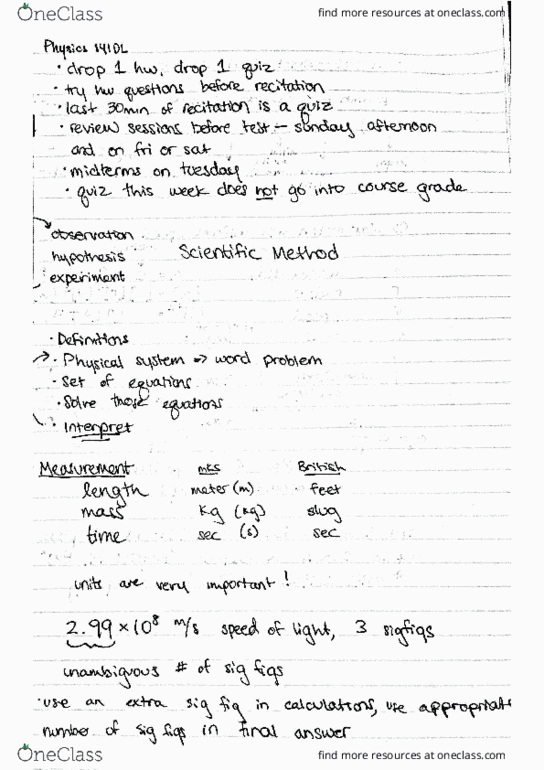 OneClass find more resources at oneclass.com
Physics 141DL
· drop 1 hw, drop 1 quiz
· try hw questions before recitation
· last 30min of recitation is a quiz
· review sessions before test – sunday afternoon
and on fri or sat
· midterms on tuesday
· quiz this week does not go into course grade
observation
hypothesis Scientific Method
experiment
· Definitions
· Physical system => word problem
· set of equations
· solve those equations
· Interpret
Measurement mks British
length meter (m) feet
mass kg (kg) slug
time sec (s) sec
units are very important!
2.99 × 10⁸ m/s speed of light, 3 sigfigs
unambiguous # of sig figs
· use an extra sig fig in calculations, use appropriate
number of sig figs in final answer
OneClass find more resources at oneclass.com